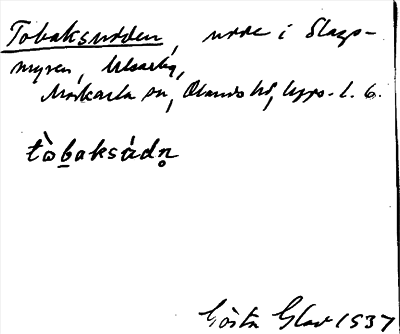 Tobaksudden, udde i Slags-
myren, Ulvarby,
Morkarla sn, Olands hd, Upps. l. 6.
tòbaksúdn̥
Gösta Glav 1937